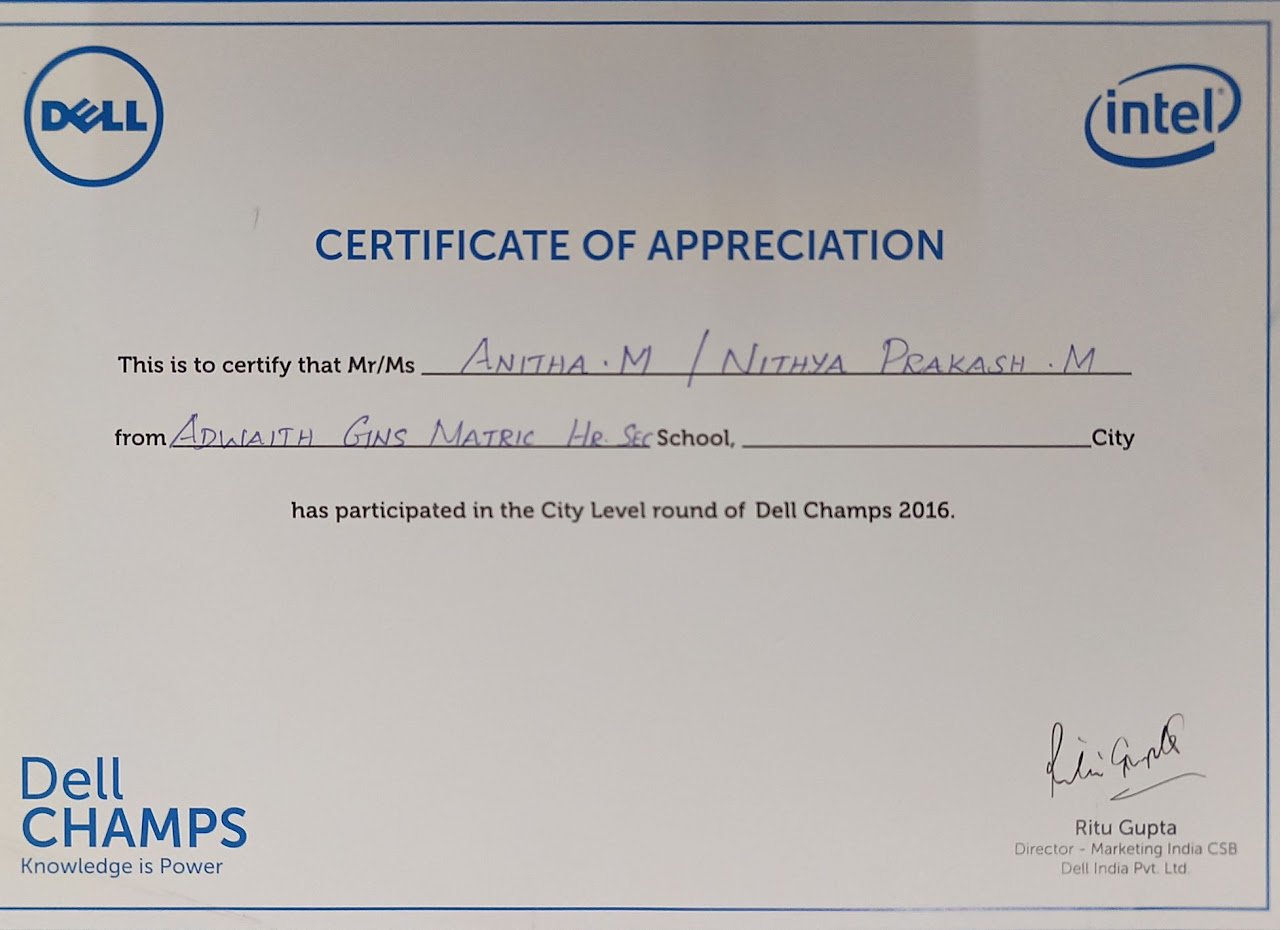 DELL
intel®
CERTIFICATE OF APPRECIATION
This is to certify that Mr/Ms ANITHA . M / NITHYA PRAKASH . M
from ADWAITH GNS MATRIC HR. SEC School, City
has participated in the City Level round of Dell Champs 2016.
Ritu Gupta
Dell
CHAMPS
Knowledge is Power
Ritu Gupta
Director - Marketing India CSB
Dell India Pvt. Ltd.